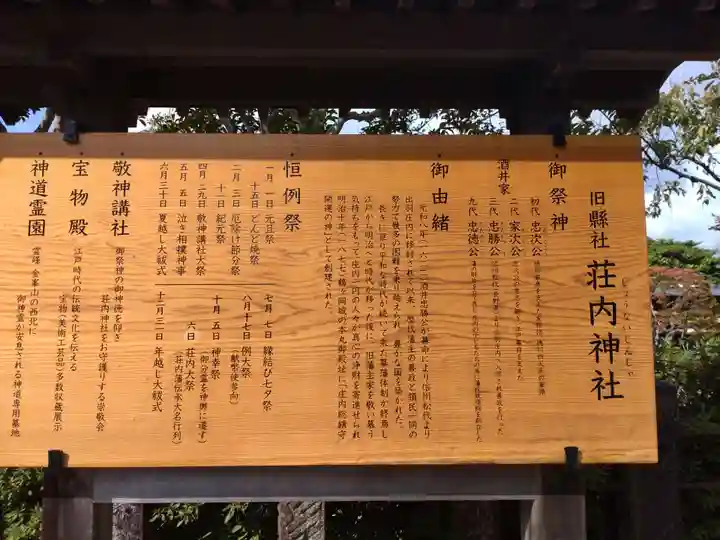 旧縣社 荘内神社
しょうないじんじゃ
御祭神
酒井家
初代 忠次公
二代 家次公
三代 忠勝公
九代 忠徳公
御由緒
元和八年(一六二二)酒井忠勝公が幕命により信州松代より
出羽庄内に移封されて以来、歴代藩主の善政と領民一同の
努力で幾多の困難を乗り越えられ、豊かな国を築かれた。
長きに亘り平和な時代が続いて来た幕藩体制が終焉し
江戸から明治へと時代が移った後に、旧藩主家を敬い慕う
気持ちをもって庄内一円の人々が真心の浄財を寄進せられ
明治十年(一八七七)鶴ヶ岡城の本丸御殿址に「庄内総鎮守
開運の神」として創建された。
恒例祭
一月 一日 元旦祭
十五日 どんと焼祭
二月 三日 厄除け節分祭
十一日 紀元祭
四月 二九日 敬神講社大祭
五月 五日 泣き相撲神事
六月 三十日 夏越し大祓式
七月 七日 縁結び七夕祭
八月十七日 例大祭
(献幣使参向)
十月 五日 神幸祭
(御分霊を神輿に遷す)
六日 荘内大祭
(荘内藩伝承大名行列)
十二月 三一日 年越し大祓式
敬神講社
御祭神の御神徳を仰ぎ
荘内神社をお守りする崇敬会
宝物殿
江戸時代の伝統文化を伝える
宝物(美術工芸品)多数収蔵展示
神道霊園
霊峰 金峯山の西北に
御神霊が安息される神道専用墓地